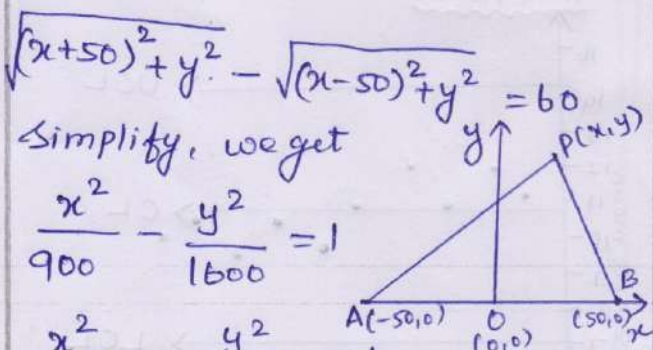 √(x+50)² + y² - √(x-50)² + y² = 60
Simplify, we get
x²/900 - y²/1600 = 1
y
P(x,y)
A(-50,0) O (0,0) B (50,0) x
x² y²